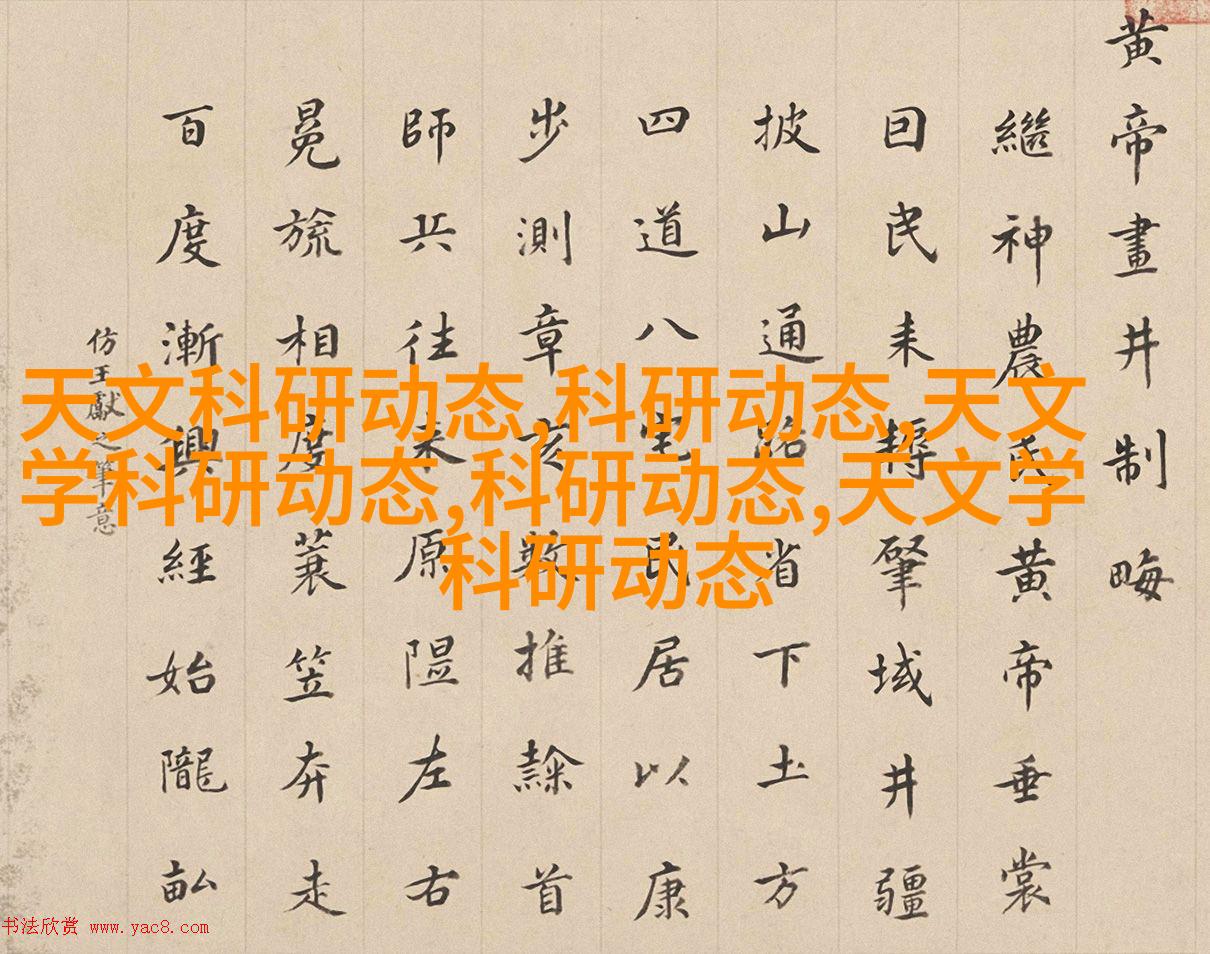 黄帝畫井制畮
繼神農氏黄帝垂裳
囙民耒耨肇域井疆
披山通路省下土方
四道八宅民居以康
步測章亥數推隷首
師兵往来原隰左右
冕旒相度蓑笠奔走
百度漸興經始隴畆
仿王獻之筆意
天文科研动态,科研动态,天文
学科研动态,科研动态,天文学
科研动态
书法欣赏 www.yac8.com